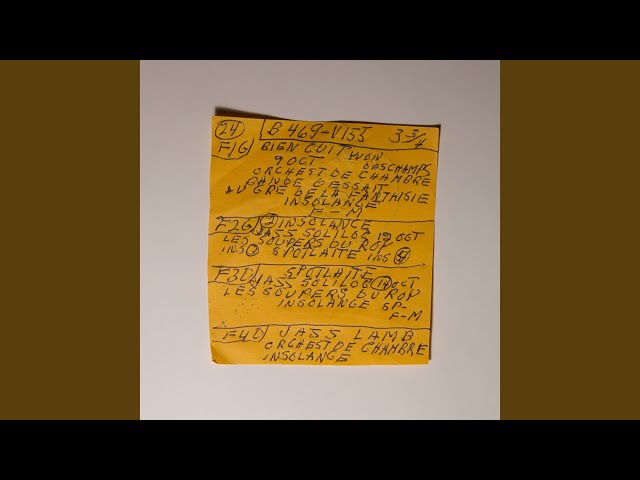 24 B 469-V155 3 3/4
F1G BIEN CUIT YVON
9 OCT DESCHAMPS
ORCHEST DE CHAMBRE
BANDE D'ESSAIT
AU GRE DE LA FANTAISIE
INSOLANGE
F-M
F2G 2 INSOLANGE
JASS SOLILOG 12 OCT
LES SOUPERS DU ROY
INS SPOTLAITE INS
F3D SPOTLAITE
JASS SOLILOG 14 OCT
LES SOUPERS DU ROY
INSOLANGE SP-
F-M
F4D JASS LAMB
ORCHEST DE CHAMBRE
INSOLANGE